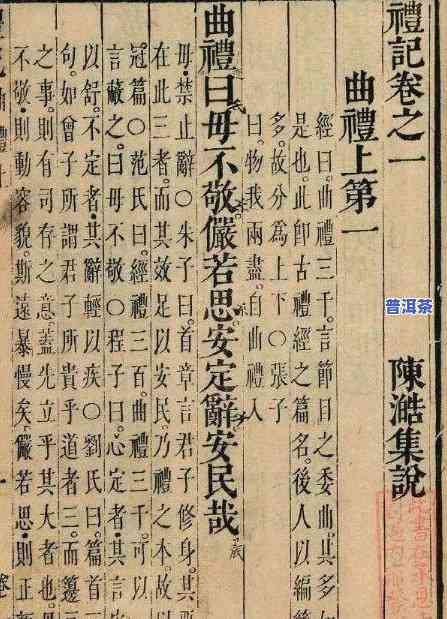 禮記卷之一 陳澔集說
曲禮上第一
經曰。曲禮三千。言節目之委曲。其多如
是也。此即古禮經之篇名。後人以編簡
多。故分爲上下○張子
曰。物我兩盡。自曲禮入
曲禮曰毋不敬儼若思安定辭安民哉
毋。禁止辭○朱子曰。首章言君子修身。其
在此三者。而其效足以安民。乃禮之本。故以
冠篇○范氏曰。經禮三百。曲禮三千。可以
言蔽之。曰毋不敬○程子曰。心定者。其言安
以舒。不定者。其辭輕以疾○劉氏曰。篇首三
句。如曾子所謂君子所貴乎道者三。而籩
之事。則有司存之意。蓋先立乎其大者也。毋
不敬。則動容貌。斯遠暴慢矣。儼若思。則正
普洱茶